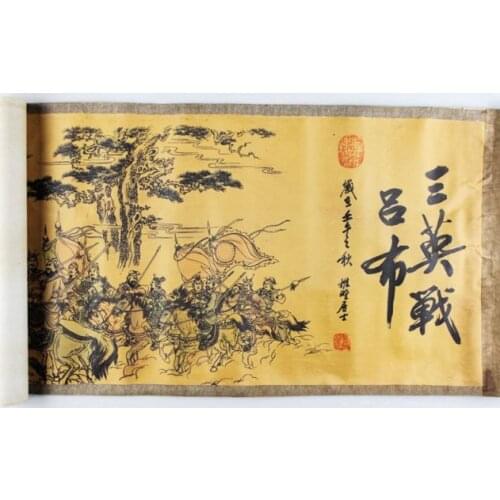 三英戰
呂布
歲在壬午之秋